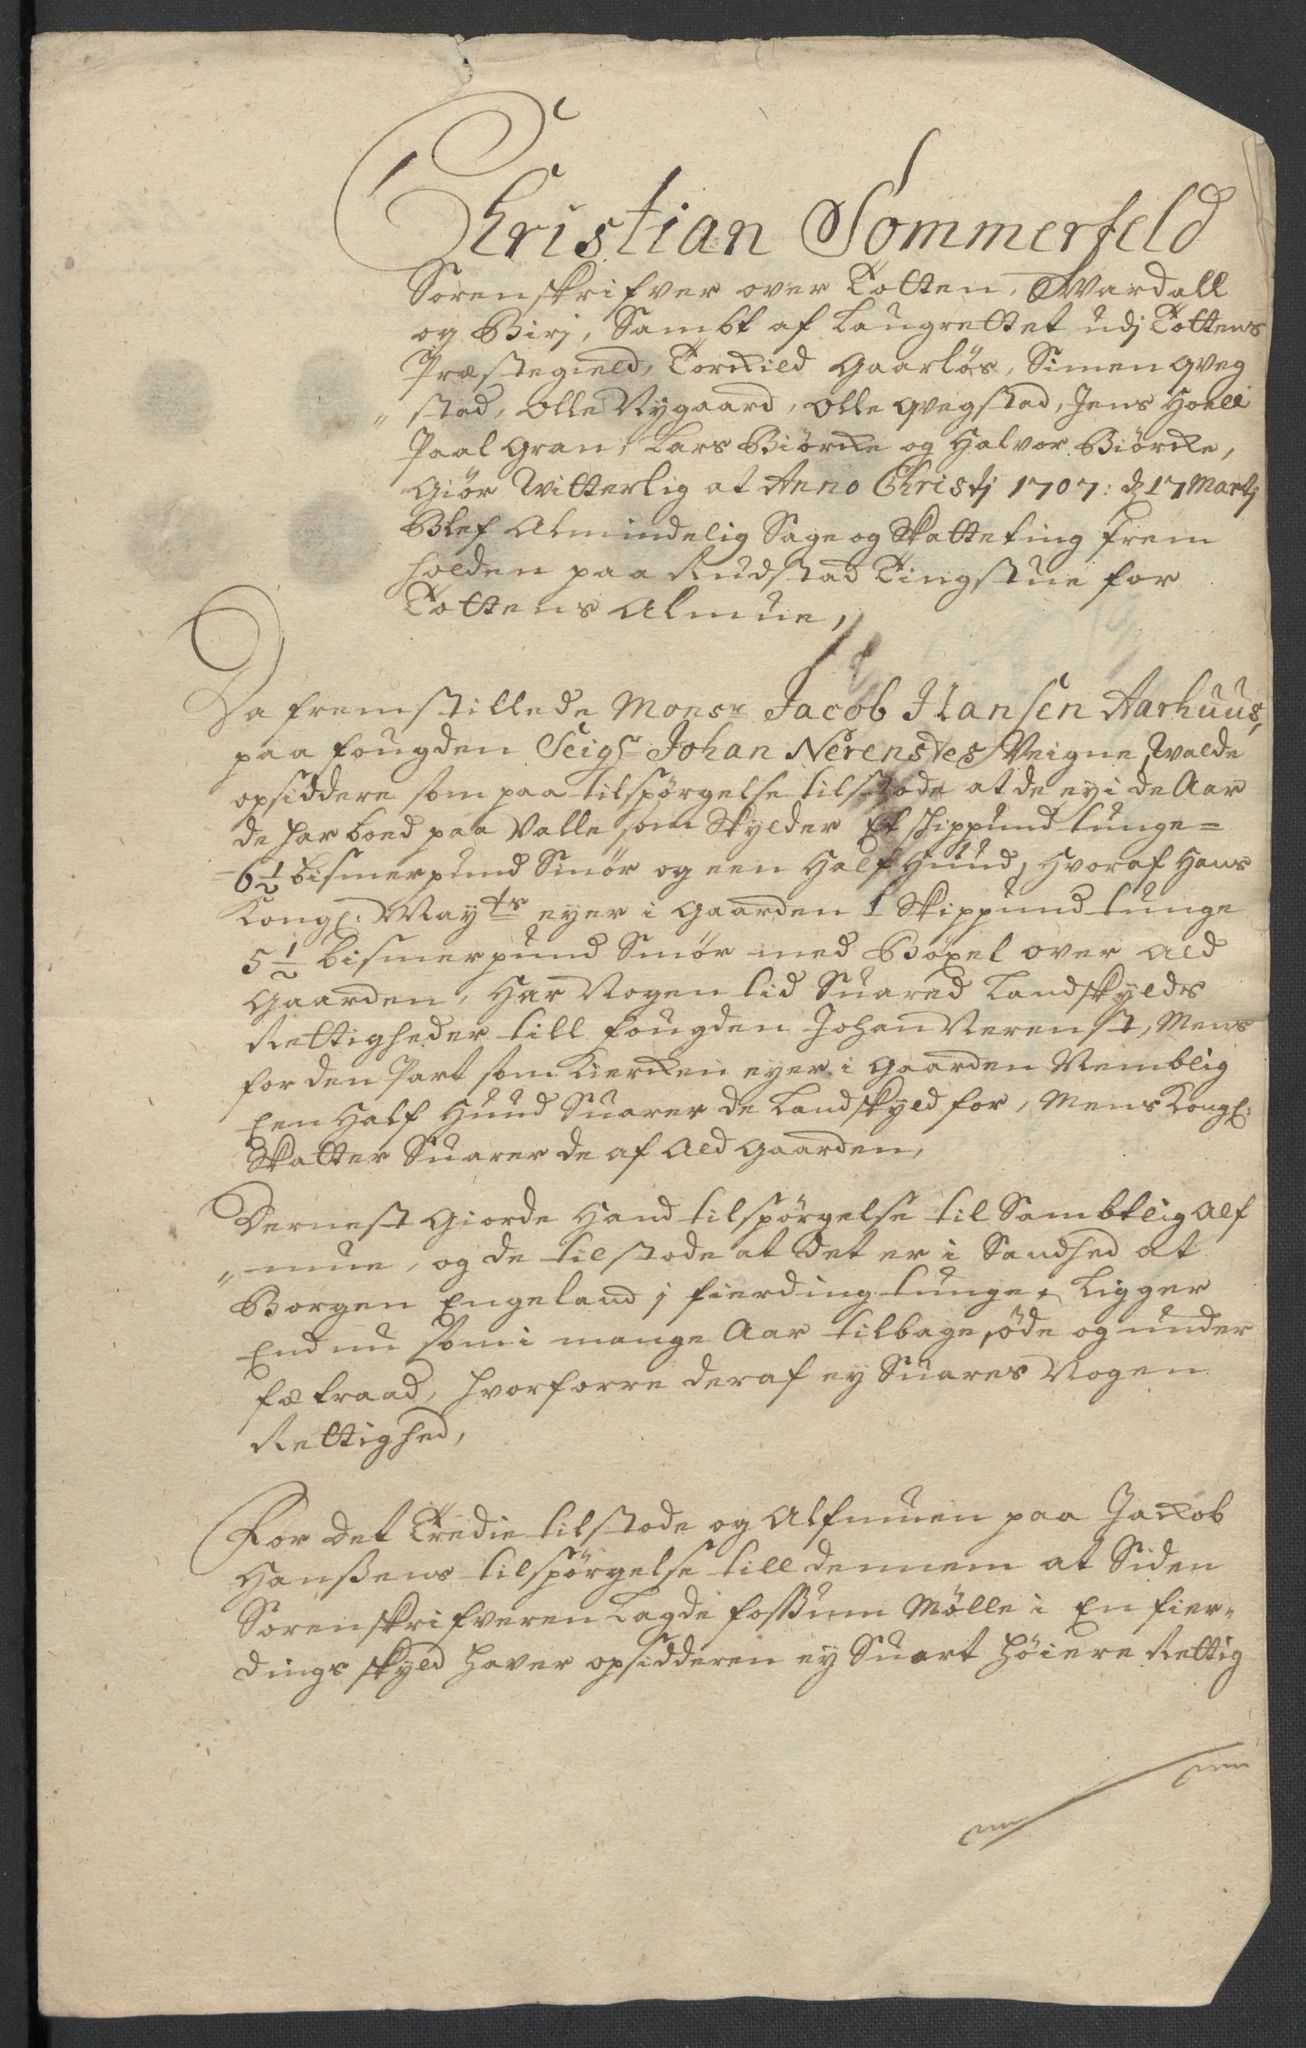 Christian Sommerfeld
Sorenskrifver over Totten, Wardall
og Birj, Sambt af Laugrettet udj Tottens
Præstegield, Torkild Gaarløs, Simen Qveg
„stad, Olle Nygaard, Olle Qvegstad, Jens Hoell
Paal Gran, Lars Biørke og Halvor Biørke,
Giør Witterlig at Anno Christj 1707: d 17 Martj
Blef Almindelig Sage og Skatteting frem
holden paa Rudstad Tingstue for
Tottens Almue,
Da fremstillede Monsr Jacob Hansen Aarhuus,
paa fougden Seigr Johan Nerenstes Veigne, Walde
opsiddere som paa tilspørgelse tilstode at de ey i de Aar
de har boed paa Valle som Skylder Et shippund tunge=
=6½ bismerpund Smør og een Half Huud, Hvoraf Hans
Kongl: Mayts eyer i Gaarden 1 Skippund tunge
5½ bismerpund Smør med Bøxel over Ald
Gaarden, Har Nogen tid Suared Landskylds
Rettigheder till fougden Johan Nerenst, Mens
for den Part som Kierken eyer i Gaarden Nemblig
Een Half Huud Suarer de Landskyld for, Mens Kongl:
Skatter Suarer de af Ald Gaarden,
Dernest Giorde Hand tilspørgelse til Sambtlig Alf
„mue, og de tilstode at det er i Sandhed at
Borgen Engeland j fierding tunge, Ligger
End nu som i mange Aar tilbage, øde og under
fætraad, hvorforre deraf ey Suares Nogen
Rettighed,
For det Tredie tilstode og Alfmuen paa Jackob
Hanßens tilspørgelse till dennem at Siden
Sorenskrifveren Lagde foßum Mølle i En fier=
dings skyld haver opsidderen ey Suart høiere Rettig